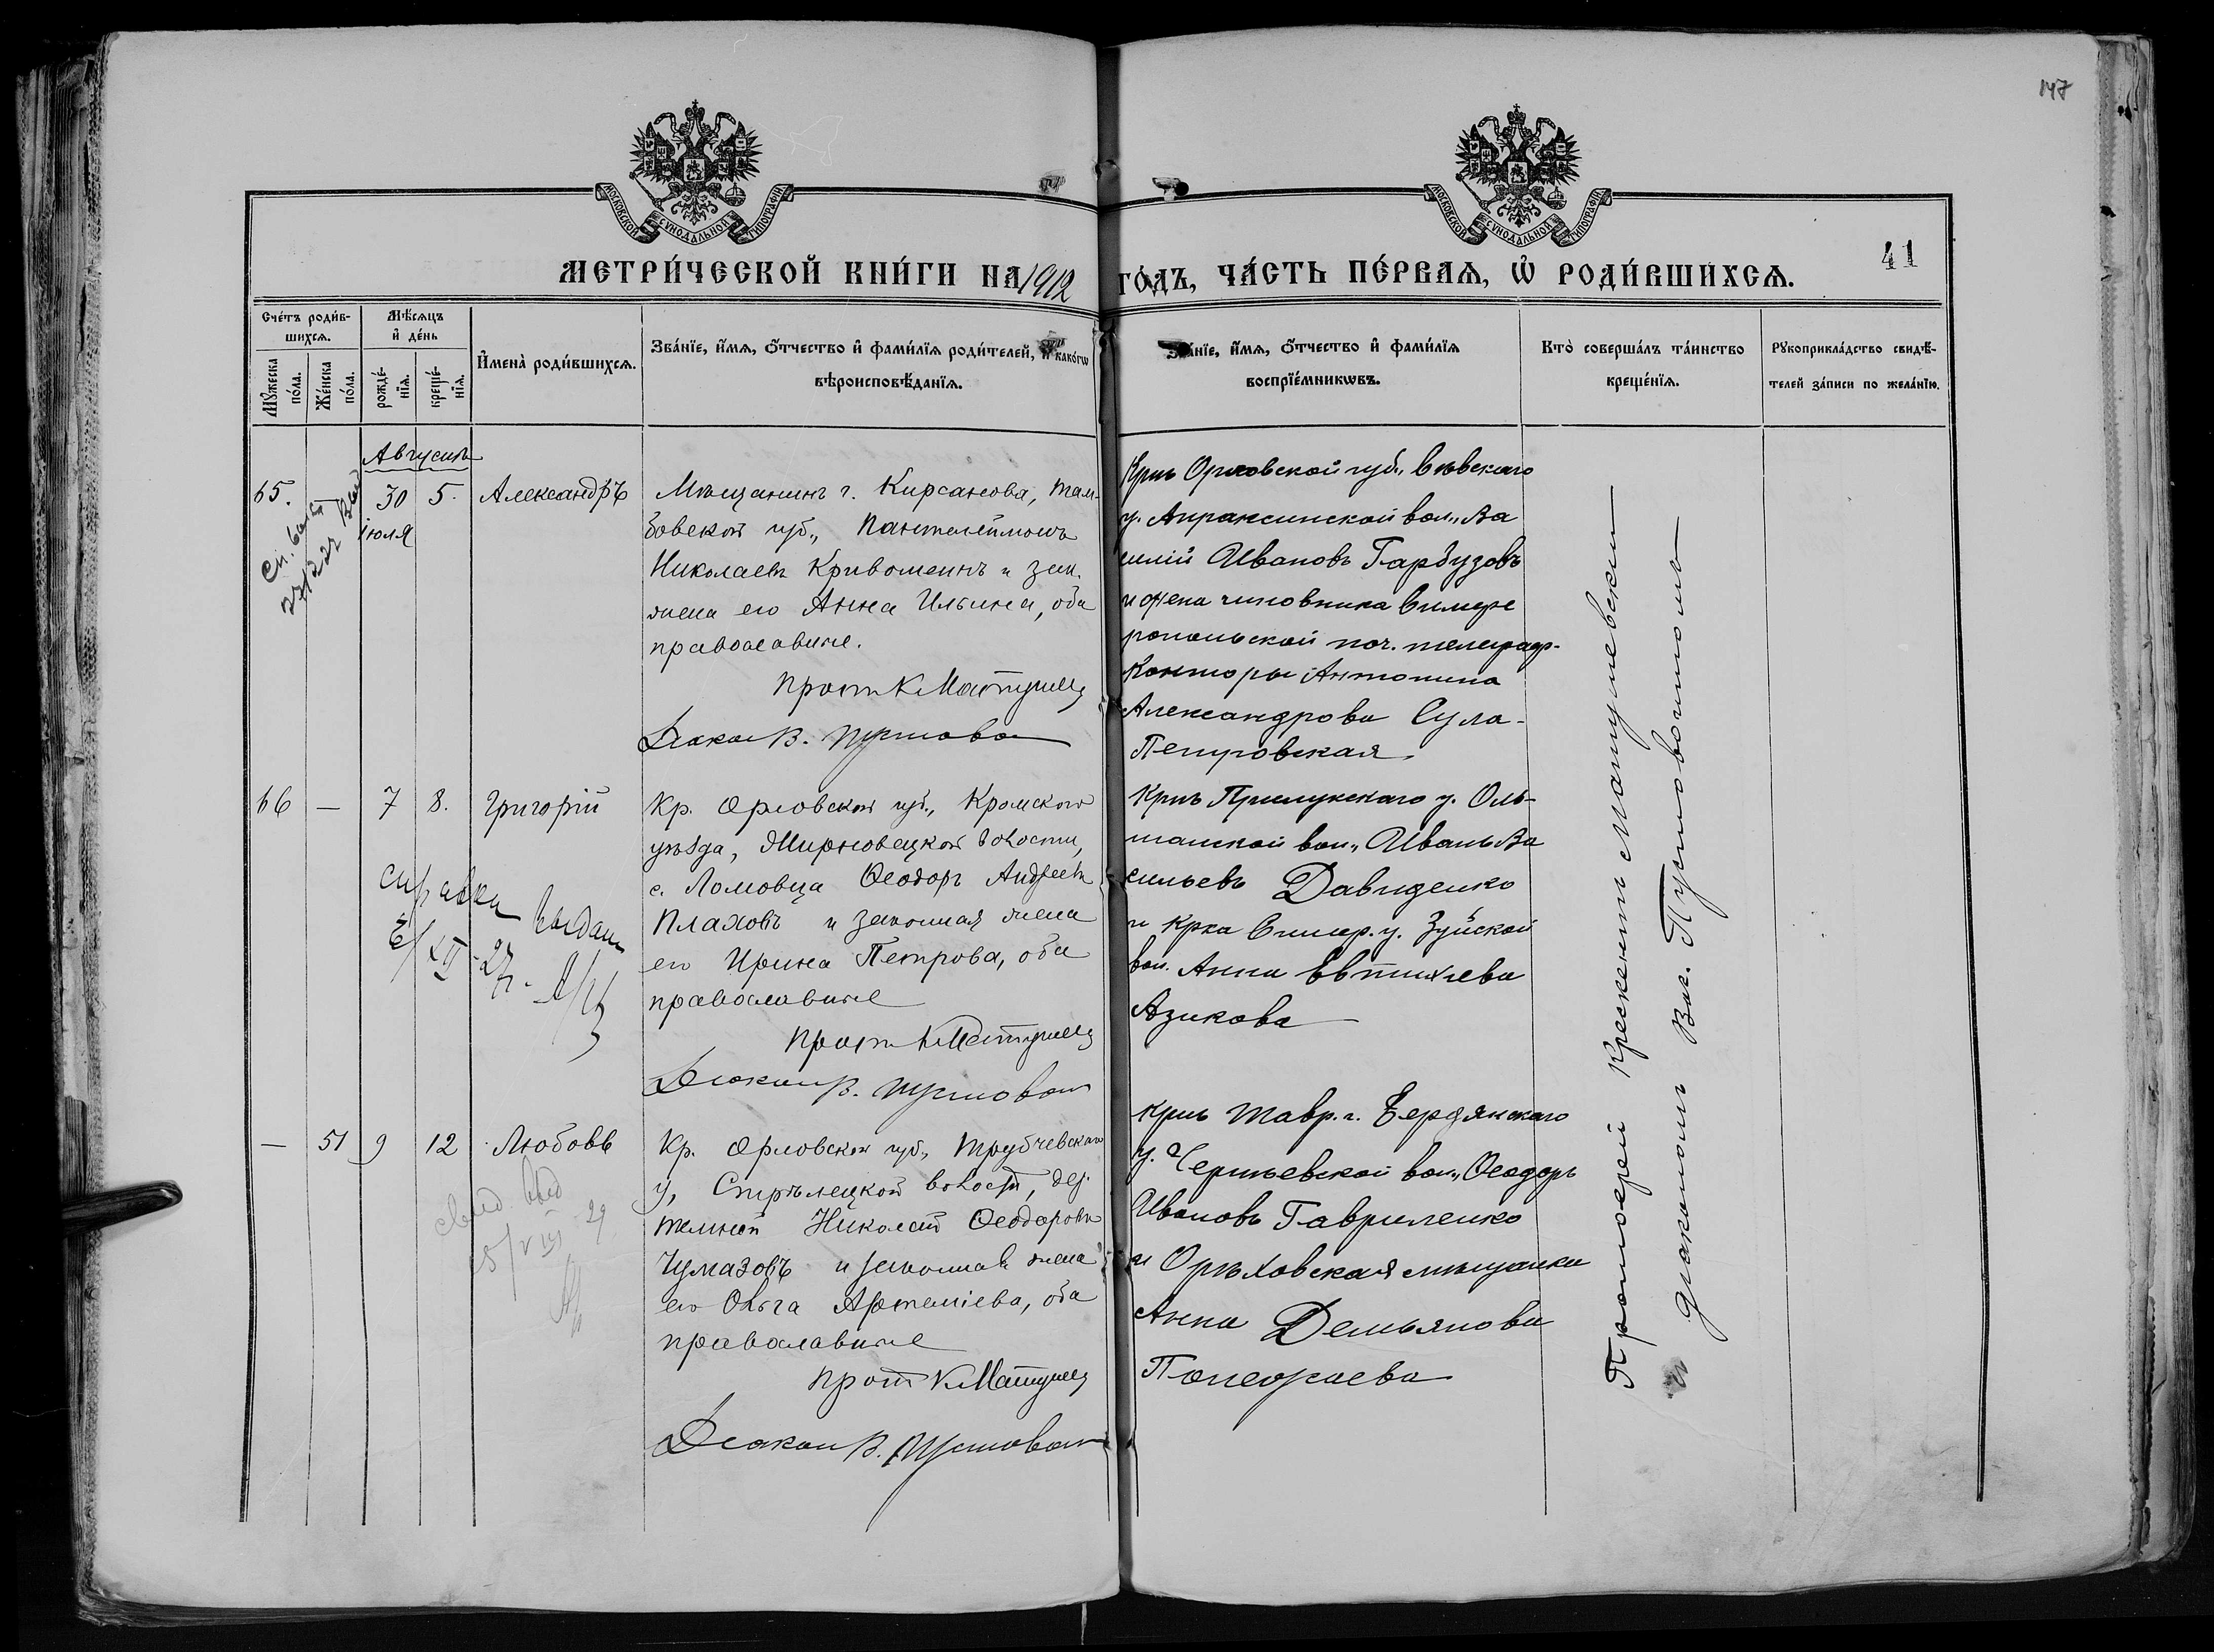 147
МОСКОВСКОЙ СУНОДАЛЬНОЙ ТИПОГРАФІИ
МОСКОВСКОЙ СУНОДАЛЬНОЙ ТИПОГРАФІИ
41
МЕТРИ́ЧЕСКОЙ КНИ́ГИ НА 1912 ГО́ДЪ, ЧА́СТЬ ПЕ́РВАЯ, Ѡ҆ РОДИ́ВШИХСЯ.
Сче́тъ роди́в-
шихся.
Мꙋжеска по́ла.
Же́нска по́ла.
Мѣ́сяцъ
и҆ де́нь
рожде́-
нїя.
креще́-
нїя.
И҆мена̀ роди́вшихся.
Зва́нїе, и҆́мя, ѻ҆́тчество и҆ фами́лїя роди́телей, и҆ како́гѡ
вѣроисповѣ́данїя.
Зва́нїе, и҆́мя, ѻ҆́тчество и҆ фами́лїя
воспрїе́мникѡвъ.
Кто̀ соверша́лъ та́инство
креще́нїя.
Рꙋкоприкла́дство свидѣ́-
телей за́писи по жела́нїю.
Августъ
65.
30 5.
Іюля
Александръ
Мѣщанинъ г. Кирсанова, Там-
бовской губ., Пантелеймонъ
Николаевъ Кривошеинъ и зак.
жена его Анна Ильина, оба
православные.
Прот К Матушев
Діакон В. Пустовой
Крнъ Орловской губ., Сѣвскаго
у. Апраксинской вол., Ва
силій Ивановъ Гарбузовъ
и жена чиновника Симфе
ропольской поч. телеграф.
Конторы Антонина
Александрова Сула-
Петровская.
66 — 7 8. Григорій
Кр. Орловской губ., Кромского
уѣзда, волости,
с. Ломовца Ѳеодоръ Андреевъ
Плаховъ и законная жена
его Ирина Петрова, оба
православные
Прот К Матушев
Діакон В. Пустовой
справка выдан
XII 27
Крнъ Прилукскаго у. Оль-
шанской вол., Иванъ Ва
сильевъ Давиденко
и Крка Симф. у. Зуйской
вол. Анна Евтихіева
Азикова
— 51 9 12 Любовь
Кр. Орловской губ., Трубчевскаго
у, Стрѣлецкой волости, дер.
Телицъ Николай Ѳеодоровъ
Чумазовъ и законная жена
его Ольга Артеміева, оба
православные
Прот К Матушев
Діакон В. Пустовой
свид выд
Крнъ Тавр. г. Бердянскаго
у. Черниевской вол., Ѳеодоръ
Ивановъ Гавриленко
и Орѣховская мѣщанка
Анна Демьянова
Протоіерей Крескентъ Матушевскій
и діаконъ Вас. Пустовойтовъ